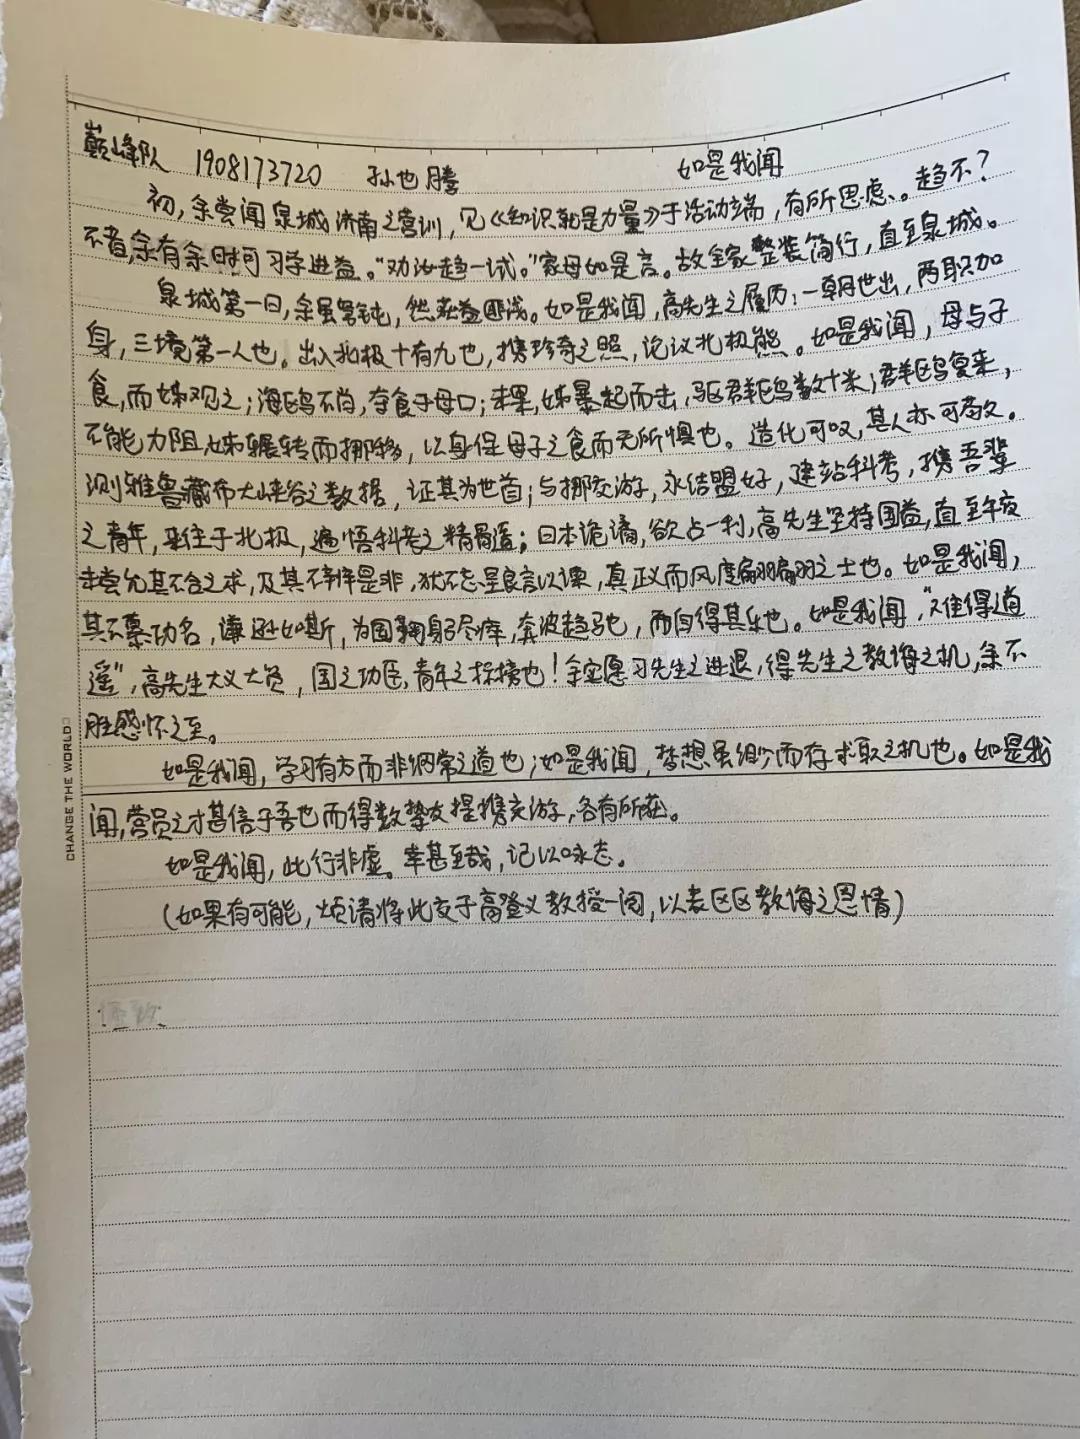 巅峰队 1908173720 孙也腾 如是我闻
初,余尝闻泉城济南之营训,见《知识就是力量》于活动端,有所思虑。趋不?
不者,余有余时可习学进益。“劝汝趋一试。”家母如是言。故全家整装简行,直至泉城。
泉城第一日,余虽驽钝,然获益匪浅。如是我闻,高先生之履历:一朝世出,两职加
身,三境第一人也。出入北极十有九也,携珍奇之照,论议北极熊。如是我闻,母与子
食,而姊观之;海鸥不尚,夺食于母口;未果,姊暴起而击,驱群鸥数十米;群鸥复来,
不能力阻,姊辗转而挪移,以身保母子之食而无所惧也。造化可叹,其人亦可敬。
测雅鲁藏布大峡谷之数据,证其为世首;与挪交游,永结盟好,建站科考,携吾辈
之青年,来往于北极,遍悟科考之精骨遥;日本诡谲,欲占一利,高先生坚持国益,直至午夜
未尝允其不合之求,及其不悻是非,犹不忘呈良言以谏,真正义而风度翩翩之士也。如是我闻,
其不慕功名,谦逊如斯,为国鞠躬尽瘁,奔波趋驰,而自得其乐也。如是我闻,“难得逍
遥”,高先生大义大负,国之功臣,青年之榜撗也!余实愿习先生之进退,得先生之教诲之机,余不
胜感怀之至。
如是我闻,学习有方而非纲常之道也;如是我闻,梦想虽细而存求取之机也。如是我
闻,营员之才甚倍于吾也而得数挚友提携交游,各有所获。
如是我闻,此行非虚。幸甚至哉,记以咏志。
(如果有可能,烦请将此文于高登义教授一阅,以表区区教诲之恩情)
CHANGE THE WORLD